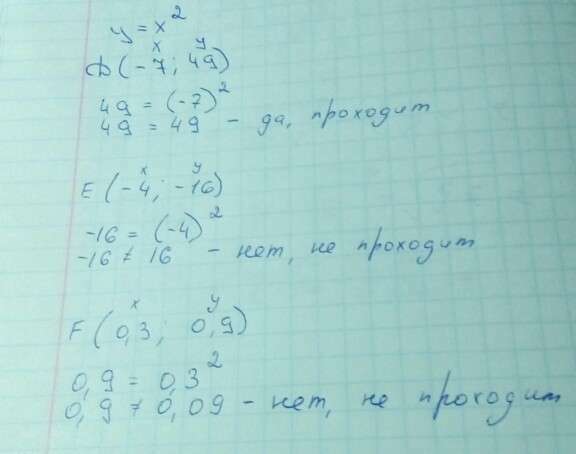 y = x²
x y
D (-7; 49)
49 = (-7)²
49 = 49 - да, проходит
x y
E (-4; -16)
-16 = (-4)²
-16 ≠ 16 - нет, не проходит
x y
F (0,3; 0,9)
0,9 = 0,3²
0,9 ≠ 0,09 - нет, не проходит